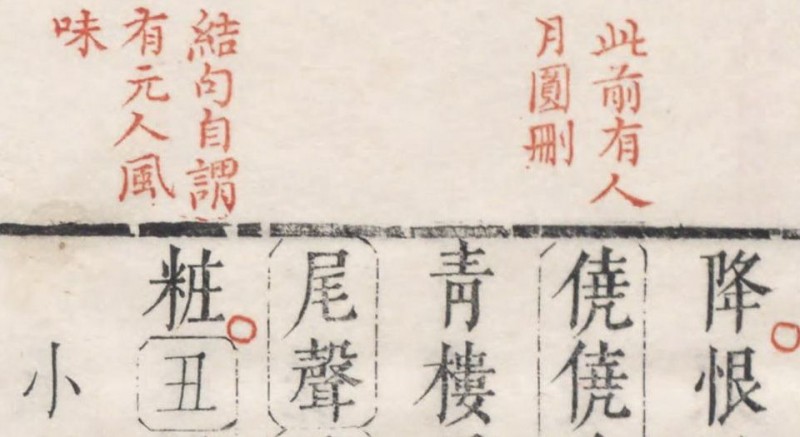 此前有人
月圓刪
結句自謂
有元人風
味
降恨
僥僥
青樓
尾聲
粧丑
小